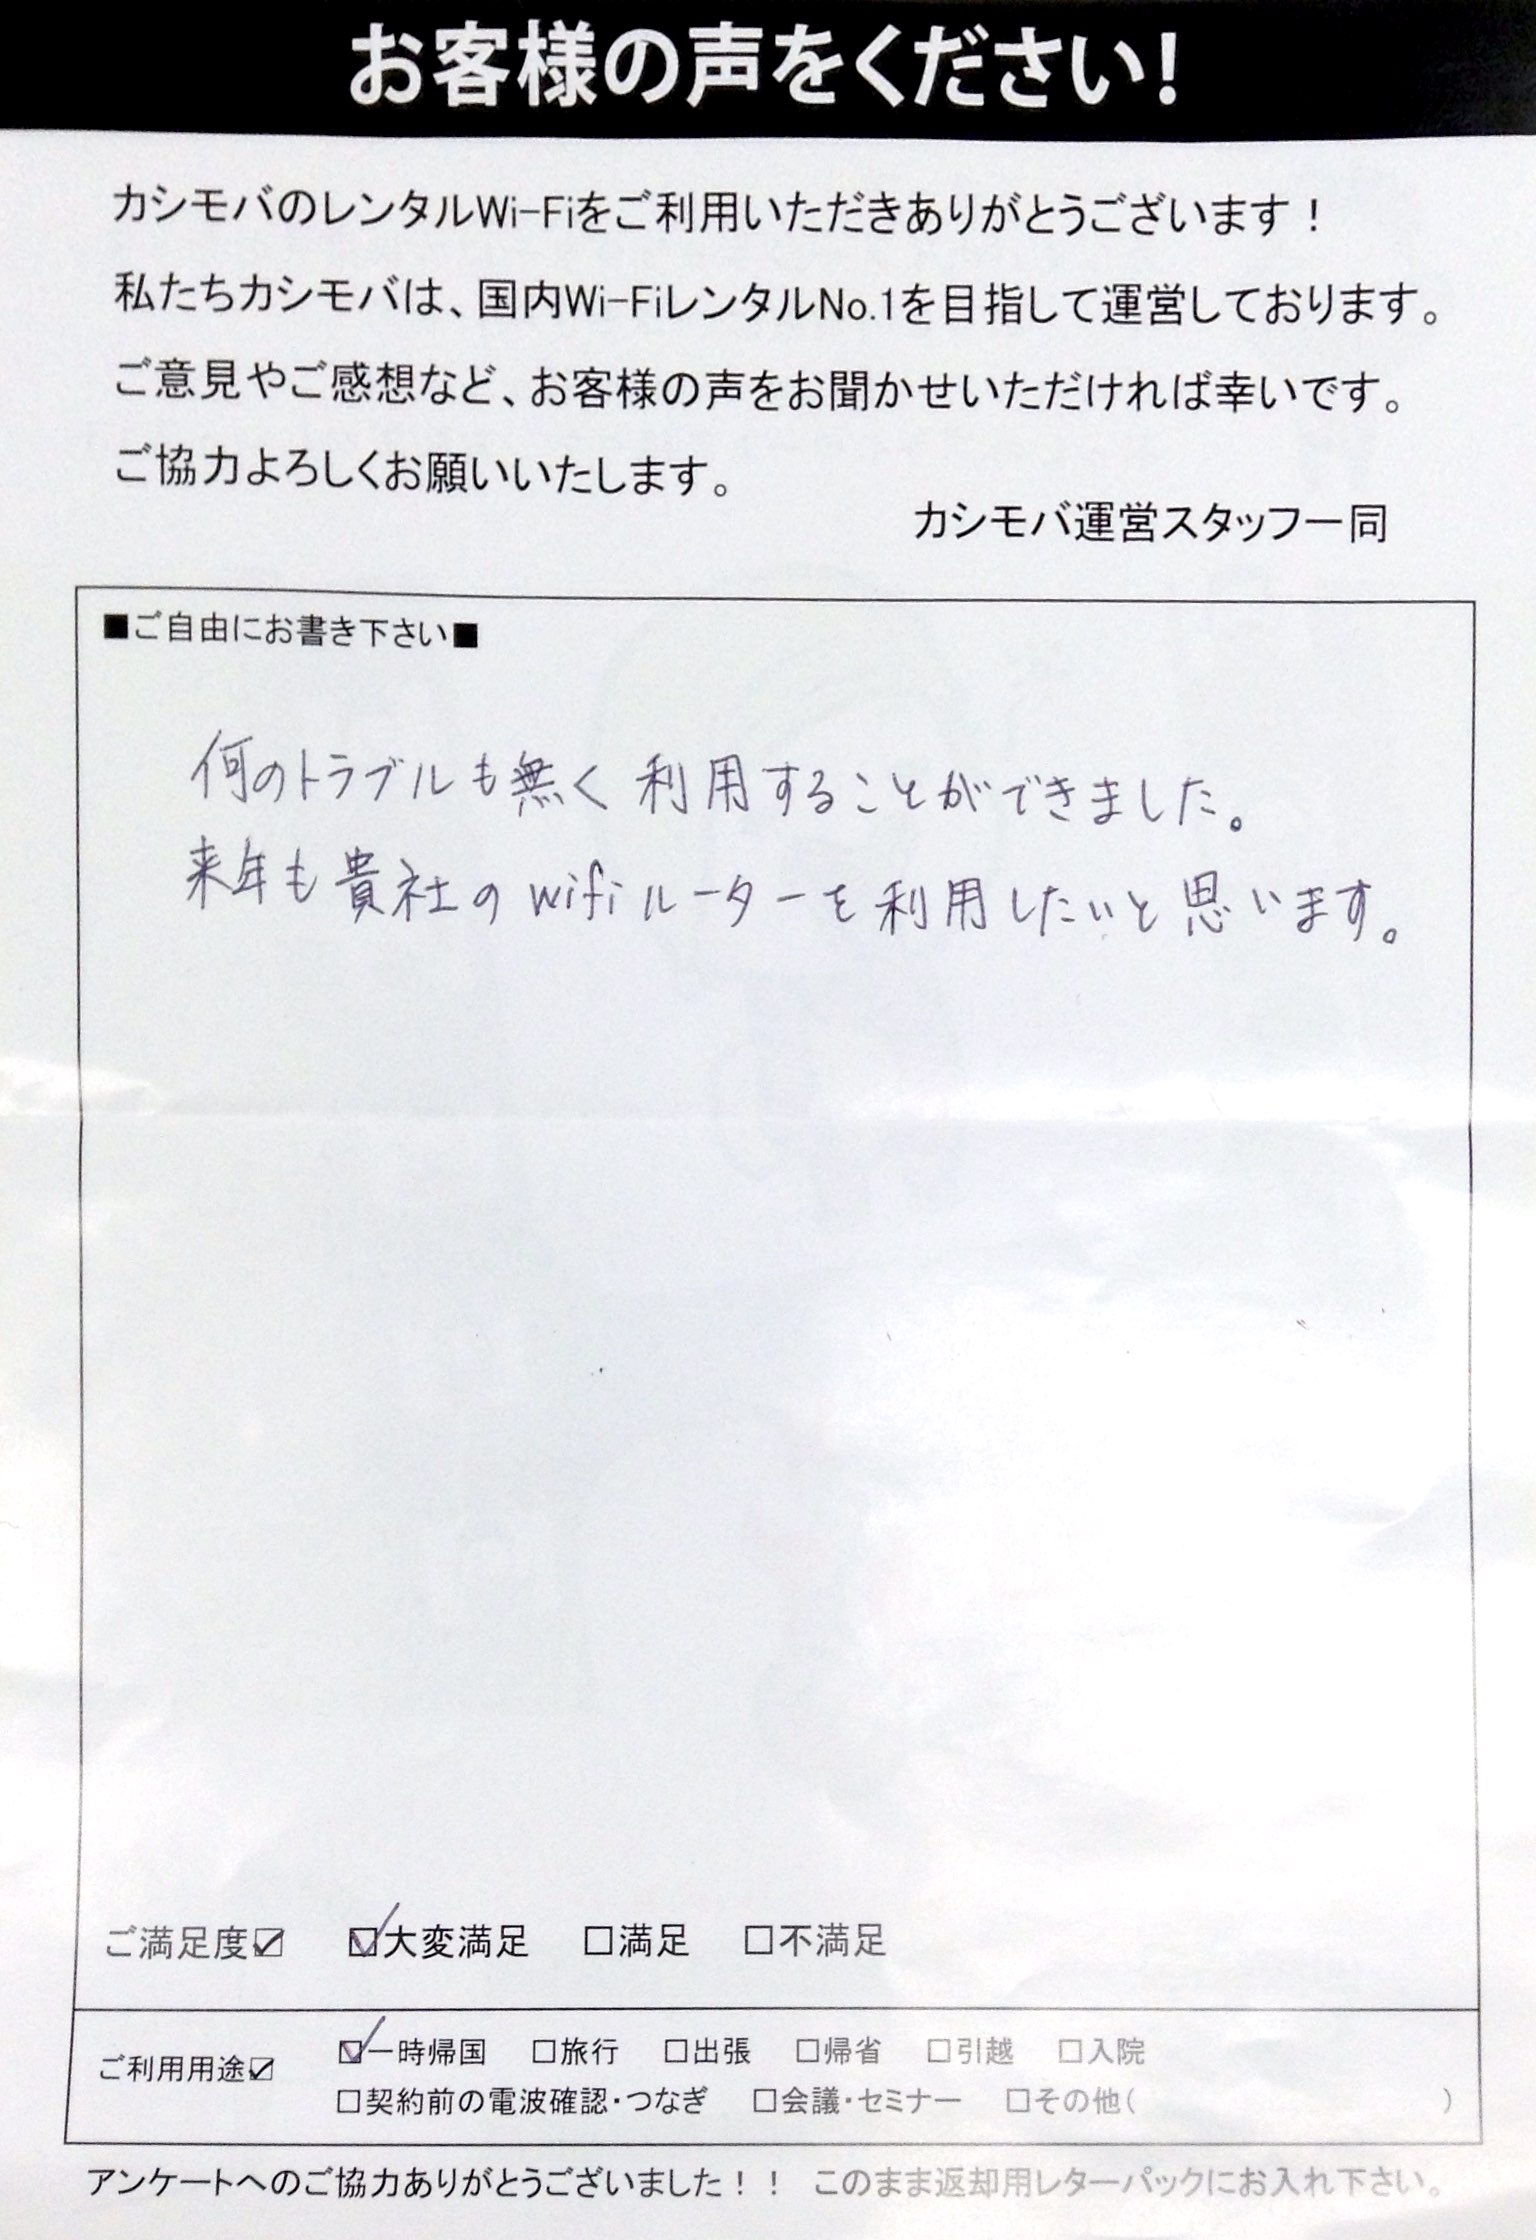 お客様の声をください!
カシモバのレンタルWi-Fiをご利用いただきありがとうございます！
私たちカシモバは、国内Wi-FiレンタルNo.1を目指して運営しております。
ご意見やご感想など、お客様の声をお聞かせいただければ幸いです。
ご協力よろしくお願いいたします。
カシモバ運営スタッフ一同
■ご自由にお書き下さい■
何のトラブルも無く利用することができました。
来年も貴社のwifiルーターを利用したいと思います。
ご満足度☑ ☑大変満足 □満足 □不満足
ご利用用途☑ ☑一時帰国 □旅行 □出張 □帰省 □引越 □入院
□契約前の電波確認・つなぎ □会議・セミナー □その他( )
アンケートへのご協力ありがとうございました！！ このまま返却用レターパックにお入れ下さい。